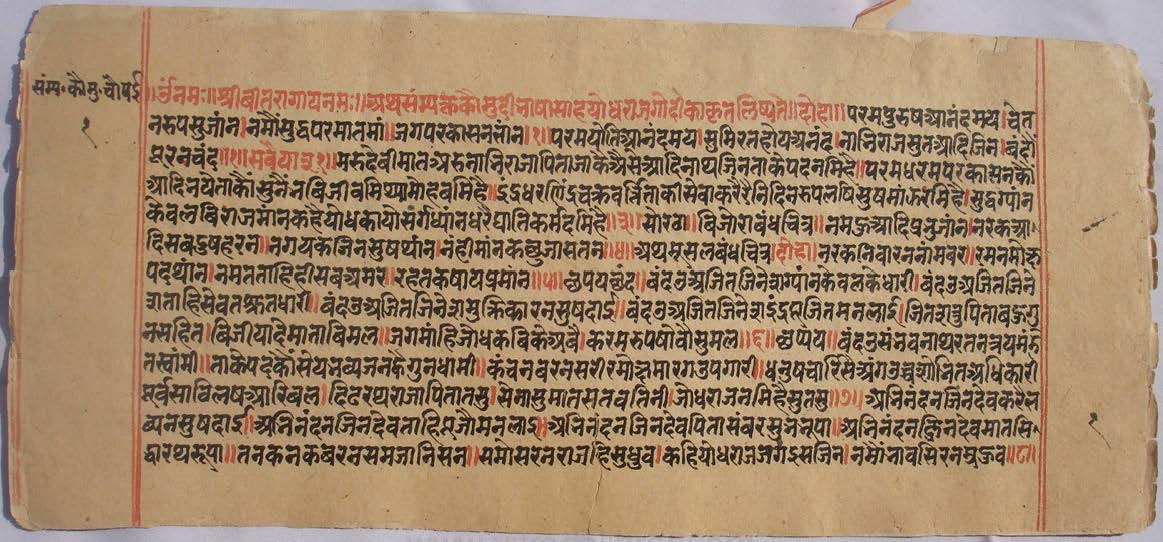 संम्य॰ कौमु॰ चौपई
१
॥ॐनमः॥ श्रीवीतरागायनमः॥ अथसंम्यक्तकौमुदीभाषासाहयोधराजगोदीकाकृतलिष्यते॥ दोहा॥ परमपुरुषआनंदमय। चेत
नरुपसुजांन। नमौंसुद्धपरमातमां। जगपरकासनभांन।१। परमयोतिआनंदमय। सुमिरतहोयअनंद। नाभिराजसुतआदिजिन। बंदौं
पूरनचंद॥२॥ सवैया३१॥ मरुदेवीमातअरुनाभिराजापिताजाकेअैसेआदिनाथजिनताकेपदनमिहै। परमधरमपरकासनकौं
आदिनयेताकौंसुनैंभविजीवमिथ्यामोहवमिहै। इंद्रधरणिंद्रचक्रवर्त्तिताकीसेवाकरैरैंनिदिनरुपलषिसुषमांऊरमिहै। सुद्धग्यांन
केवलविराजमानकहैयोधकायोसंगध्यांनधरैघातिकर्मदमिहै॥३॥ सोरठा॥ बिजोराबंधचित्र॥ नमऊआदिप्रभुजांन। नरकआ
दिसबदुषहरन। नगयकजिनसुषथांन। नंहीमांनकछुजासतन॥४॥ अथमूसलबंधचित्र। दोहा। नरकनिवारननांमवर। रमनमोक्ष
पदथांन। नमतताहिहीसबअमर। रहतकषायप्रमांन॥५॥ छपयछंद॥ बंदउअजितजिनेशग्यांनकेवलकेधारी। बंदउअजितजिने
शताहिसेवतश्रुतधारी॥ बंदउअजितजिनेशमुक्तिकारनसुषदाई। बंदउअजितजिनेशइंद्रपूजितमनलाई। जितशत्रुपिताबऊगु
नसहित। बिजीयादेमाताबिमल। जगमांहिजोधकविकेअबै। करमरुपषोवौसुमल॥६॥ छप्पय॥ बंदउसंभवनाथरतनत्रयमह
तस्वांमी॥ ताकेपदकौंसेयभव्यजनकैगुनधामी॥ कंचनबरनसरीरमोक्षमारगउपगारी। धनुषचारिसैअंगउच्चशोभितअधिकारी
पूर्वसाठिलषआरिबल। दिढरथराजापितातसु। सेनासुमातसतवंतिनी। जोधराजनमिहैसुतसु॥७॥ अभिनंदनजिनदेवकरैंभ
व्यनसुषदाई। अभिनंदनजिनदेवताहिपूजौमनलाई। अभिनंदनजिनदेवपितासंबरसुभभूपा। अभिनंदनजिनदेवमातसि
द्धारथरूपा॥ तनकनकबरनसमजांनिसन॥ समोसरनराजहिसुधुव। कहियोधराजजगईसजिन। नमोंभावसिरनमुऊव॥८॥
१